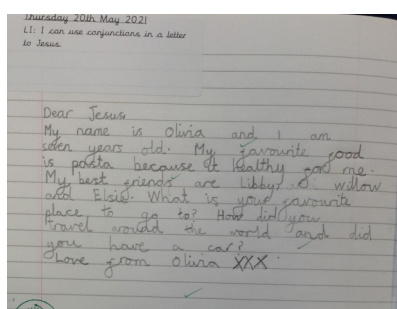 Thursday 20th May 2021
LI: I can use conjunctions in a letter
to Jesus.
Dear Jesus,
My name is Olivia and I am
seven years old. My favourite food
is pasta because it healthy for me.
My best friends are Libby, willow
and Elsie. What is your favourite
place to go to? How did you
travel around the world and did
you have a car?
Love from Olivia XXX